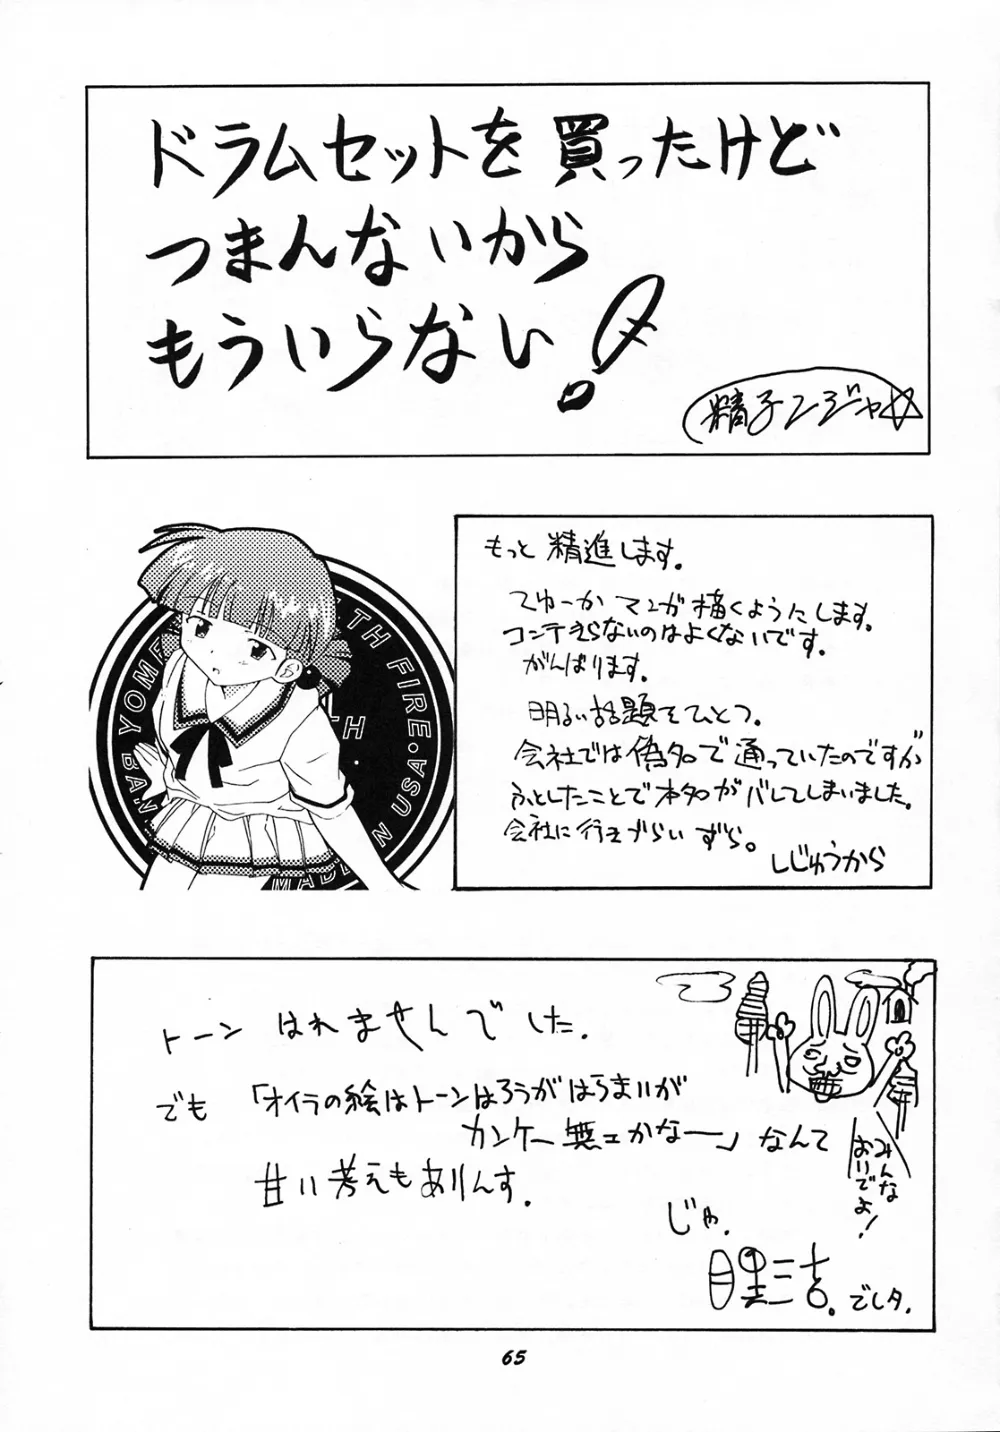 ドラムセットを買ったけど
つまんないから
もういらない!
精子ンジャ☆
もっと精進します。
てゆーかマンガ描くようにします。
コンテきらないのはよくないです。
がんばります。
明るい話題をひとつ。
会社では偽名で通っていたのですが
ふとしたことで本名がバレてしまいました。
会社に行きづらいずら。
しじゅうから
TH FIRE・
USA・
YOM
BAN
MADE
TH
トーンはれませんでした.
でも「オイラの絵はトーンはろうがはるまいが
カンケー無エかなー」なんて
甘い考えもありんす.
みんな
おいでよ!
じゃ.
三吉.でしタ.
65